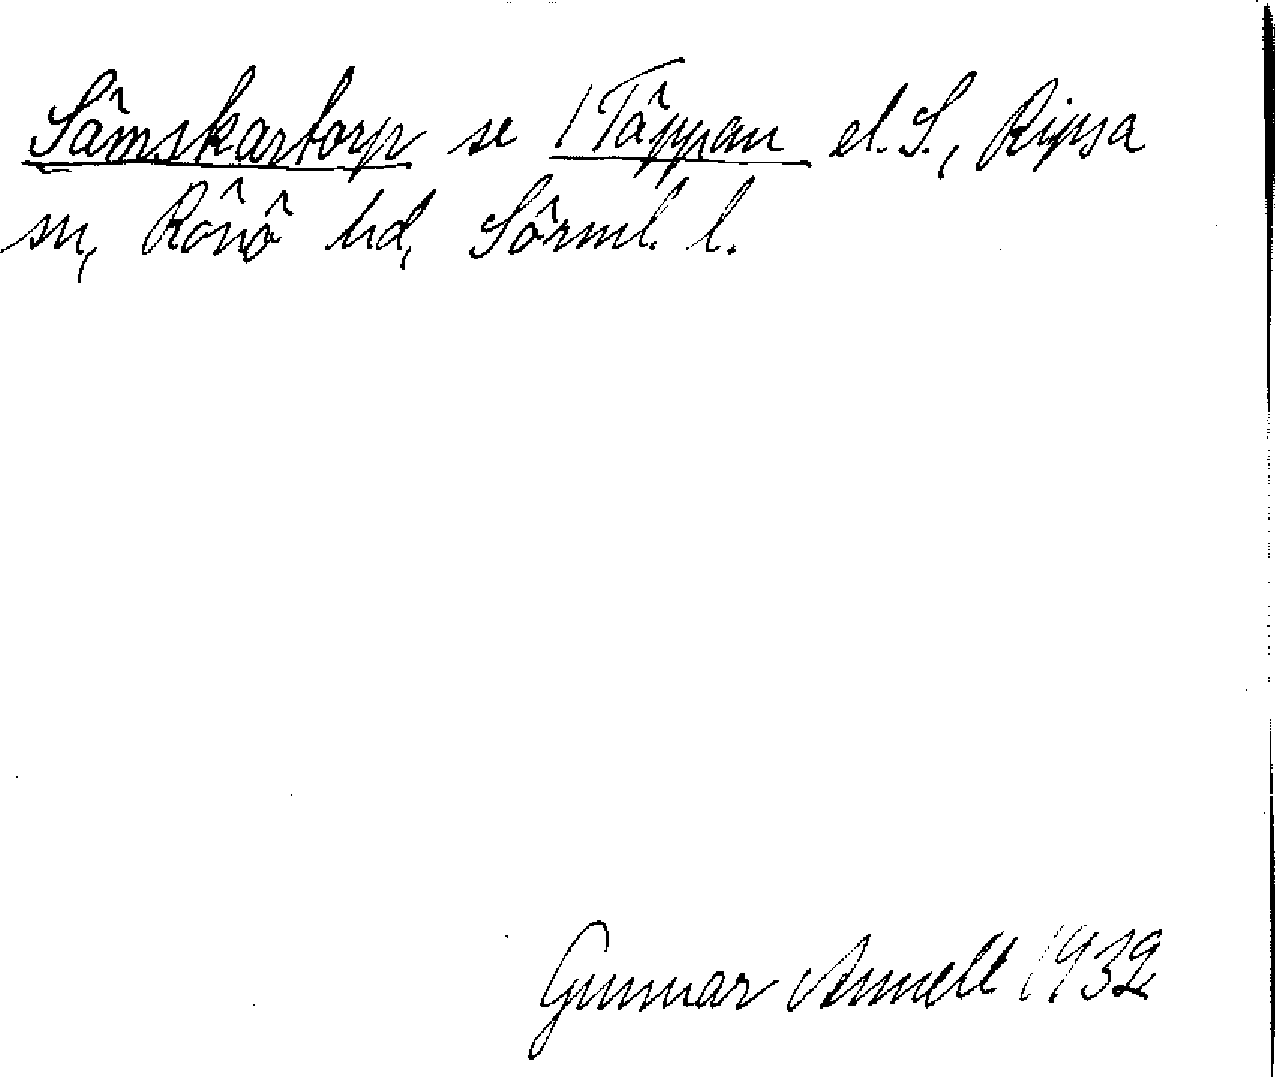 Sämskartorp se 1 Täppan el. S., Ripsa
sn, Rönö hd, Sörml. l.
Gunnar Annell 1932